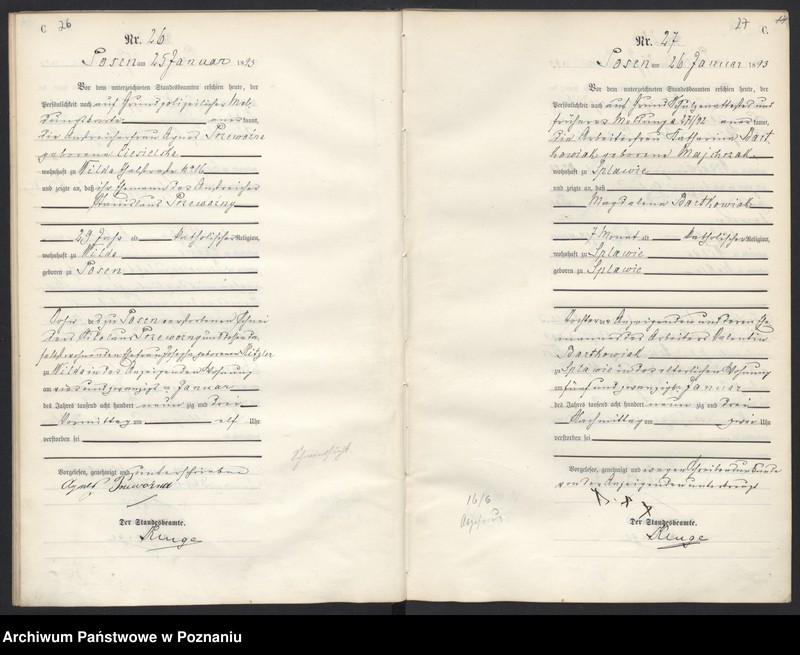 C 26
Nr. 26
Posen am 25 Januar 1893
Vor dem unterzeichneten Standesbeamten erschien heute, der
Persönlichkeit nach auf Grund polizeilicher Mel-
kannt,
die Anstreicherfrau Agnes Przewoźna
geborene Ciesielska
wohnhaft zu Wilda
und zeigte an, daß ihr Ehemann der Anstreicher
Stanislaus Przewoźny
29 Jahr alt katholischer Religion,
wohnhaft zu Wilda
geboren zu Posen
Sohn zu Posen verstorbenen Schnei
ders Nikolaus Przewoźny und
Ehefrau Josepha geborenen
zu Wilda in des Anzeigenden Wohnung
am vier und zwanzigsten Januar
des Jahres tausend acht hundert neunzig und drei
Vormittag um elf Uhr
verstorben sei
Vorgelesen, genehmigt und unterschrieben
Agnes Przewoźna
Der Standesbeamte.
Runge
Schwindsucht
27 C.
Nr. 27
Posen am 26 Januar 1893
Vor dem unterzeichneten Standesbeamten erschien heute, der
Persönlichkeit nach auf Grund und
früherer Meldung kannt,
die Arbeiterfrau Katharina Bart-
kowiak geborene Majchrzak
wohnhaft zu Splawie
und zeigte an, daß
Magdalena Bartkowiak
7 Monat alt katholischer Religion,
wohnhaft zu Splawie
geboren zu Splawie
Tochter der Anzeigenden und deren Ehe
mannes des Arbeiters Valentin
Bartkowiak
zu Splawie in der elterlichen Wohnung
am fünf und zwanzigsten Januar
des Jahres tausend acht hundert neunzig und drei
Nachmittag um zwei Uhr
verstorben sei
Vorgelesen, genehmigt und wegen Schreibensunkunde
von der Anzeigenden unterkreuzt
XXX
Der Standesbeamte.
Runge
16/6
Archiwum Państwowe w Poznaniu